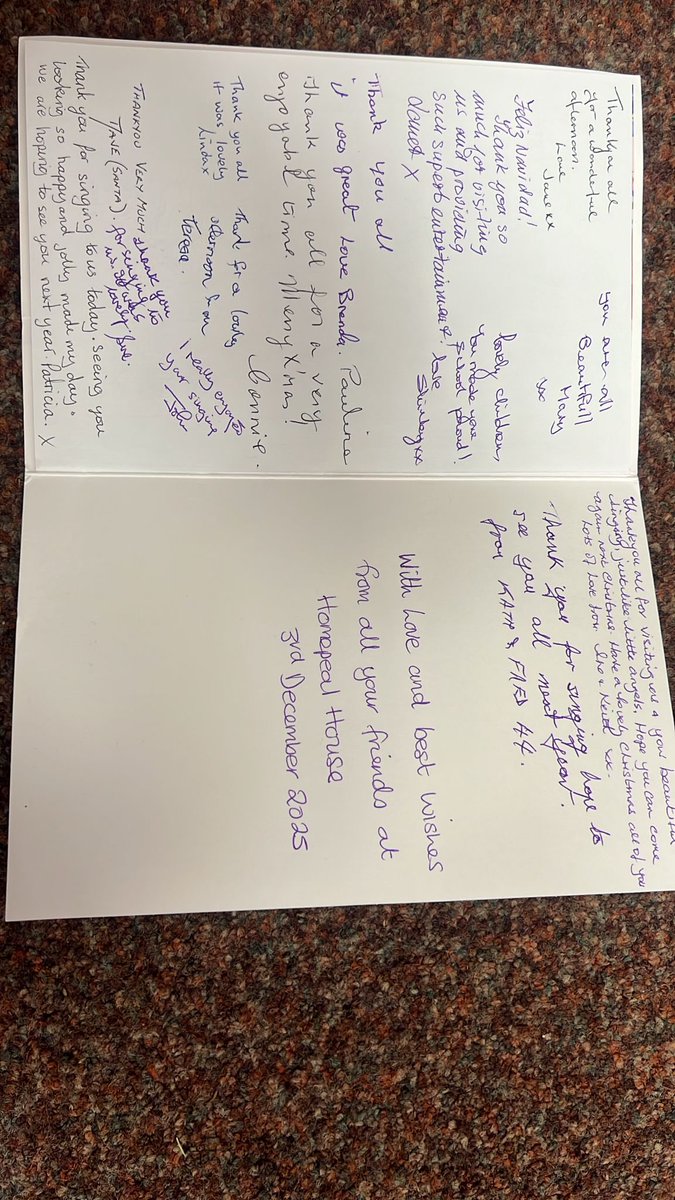 Thank you all
for a wonderful
afternoon.
Love
June xx
you are all
Beautifull
Mary
xx
Feliz Navidad!
Thank you so
much for visiting
us and providing
such superb entertainment!
Janet X
Lovely children,
You made your
school proud!
love
Shirley xx
Thank you all
it was great Love Brenda.
Pauline
Thank you all for a very
enjoyable time. Merry X'mas!
Connie.
Thank you all
it was lovely
Linda x
for a lovely
afternoon from
Teresa.
I really enjoyed
your singing
John
THANKYOU VERY MUCH
JANE (SANTA)
thank you
for singing to
us. It was
lovely
Thank you for singing to us today. Seeing you
looking so happy and jolly made my day.
we are hoping to see you next year. Patricia. X
Thankyou all for visiting us & your beautiful
singing, just like little angels. Hope you can come
again next christmas. Have a lovely christmas all of you
Lots of love from & Keith xx.
Thank you for singing hope to
see you all next year.
from KATH & FRED 44.
With Love and best wishes
from all your friends at
Homepeal House
3rd December 2025